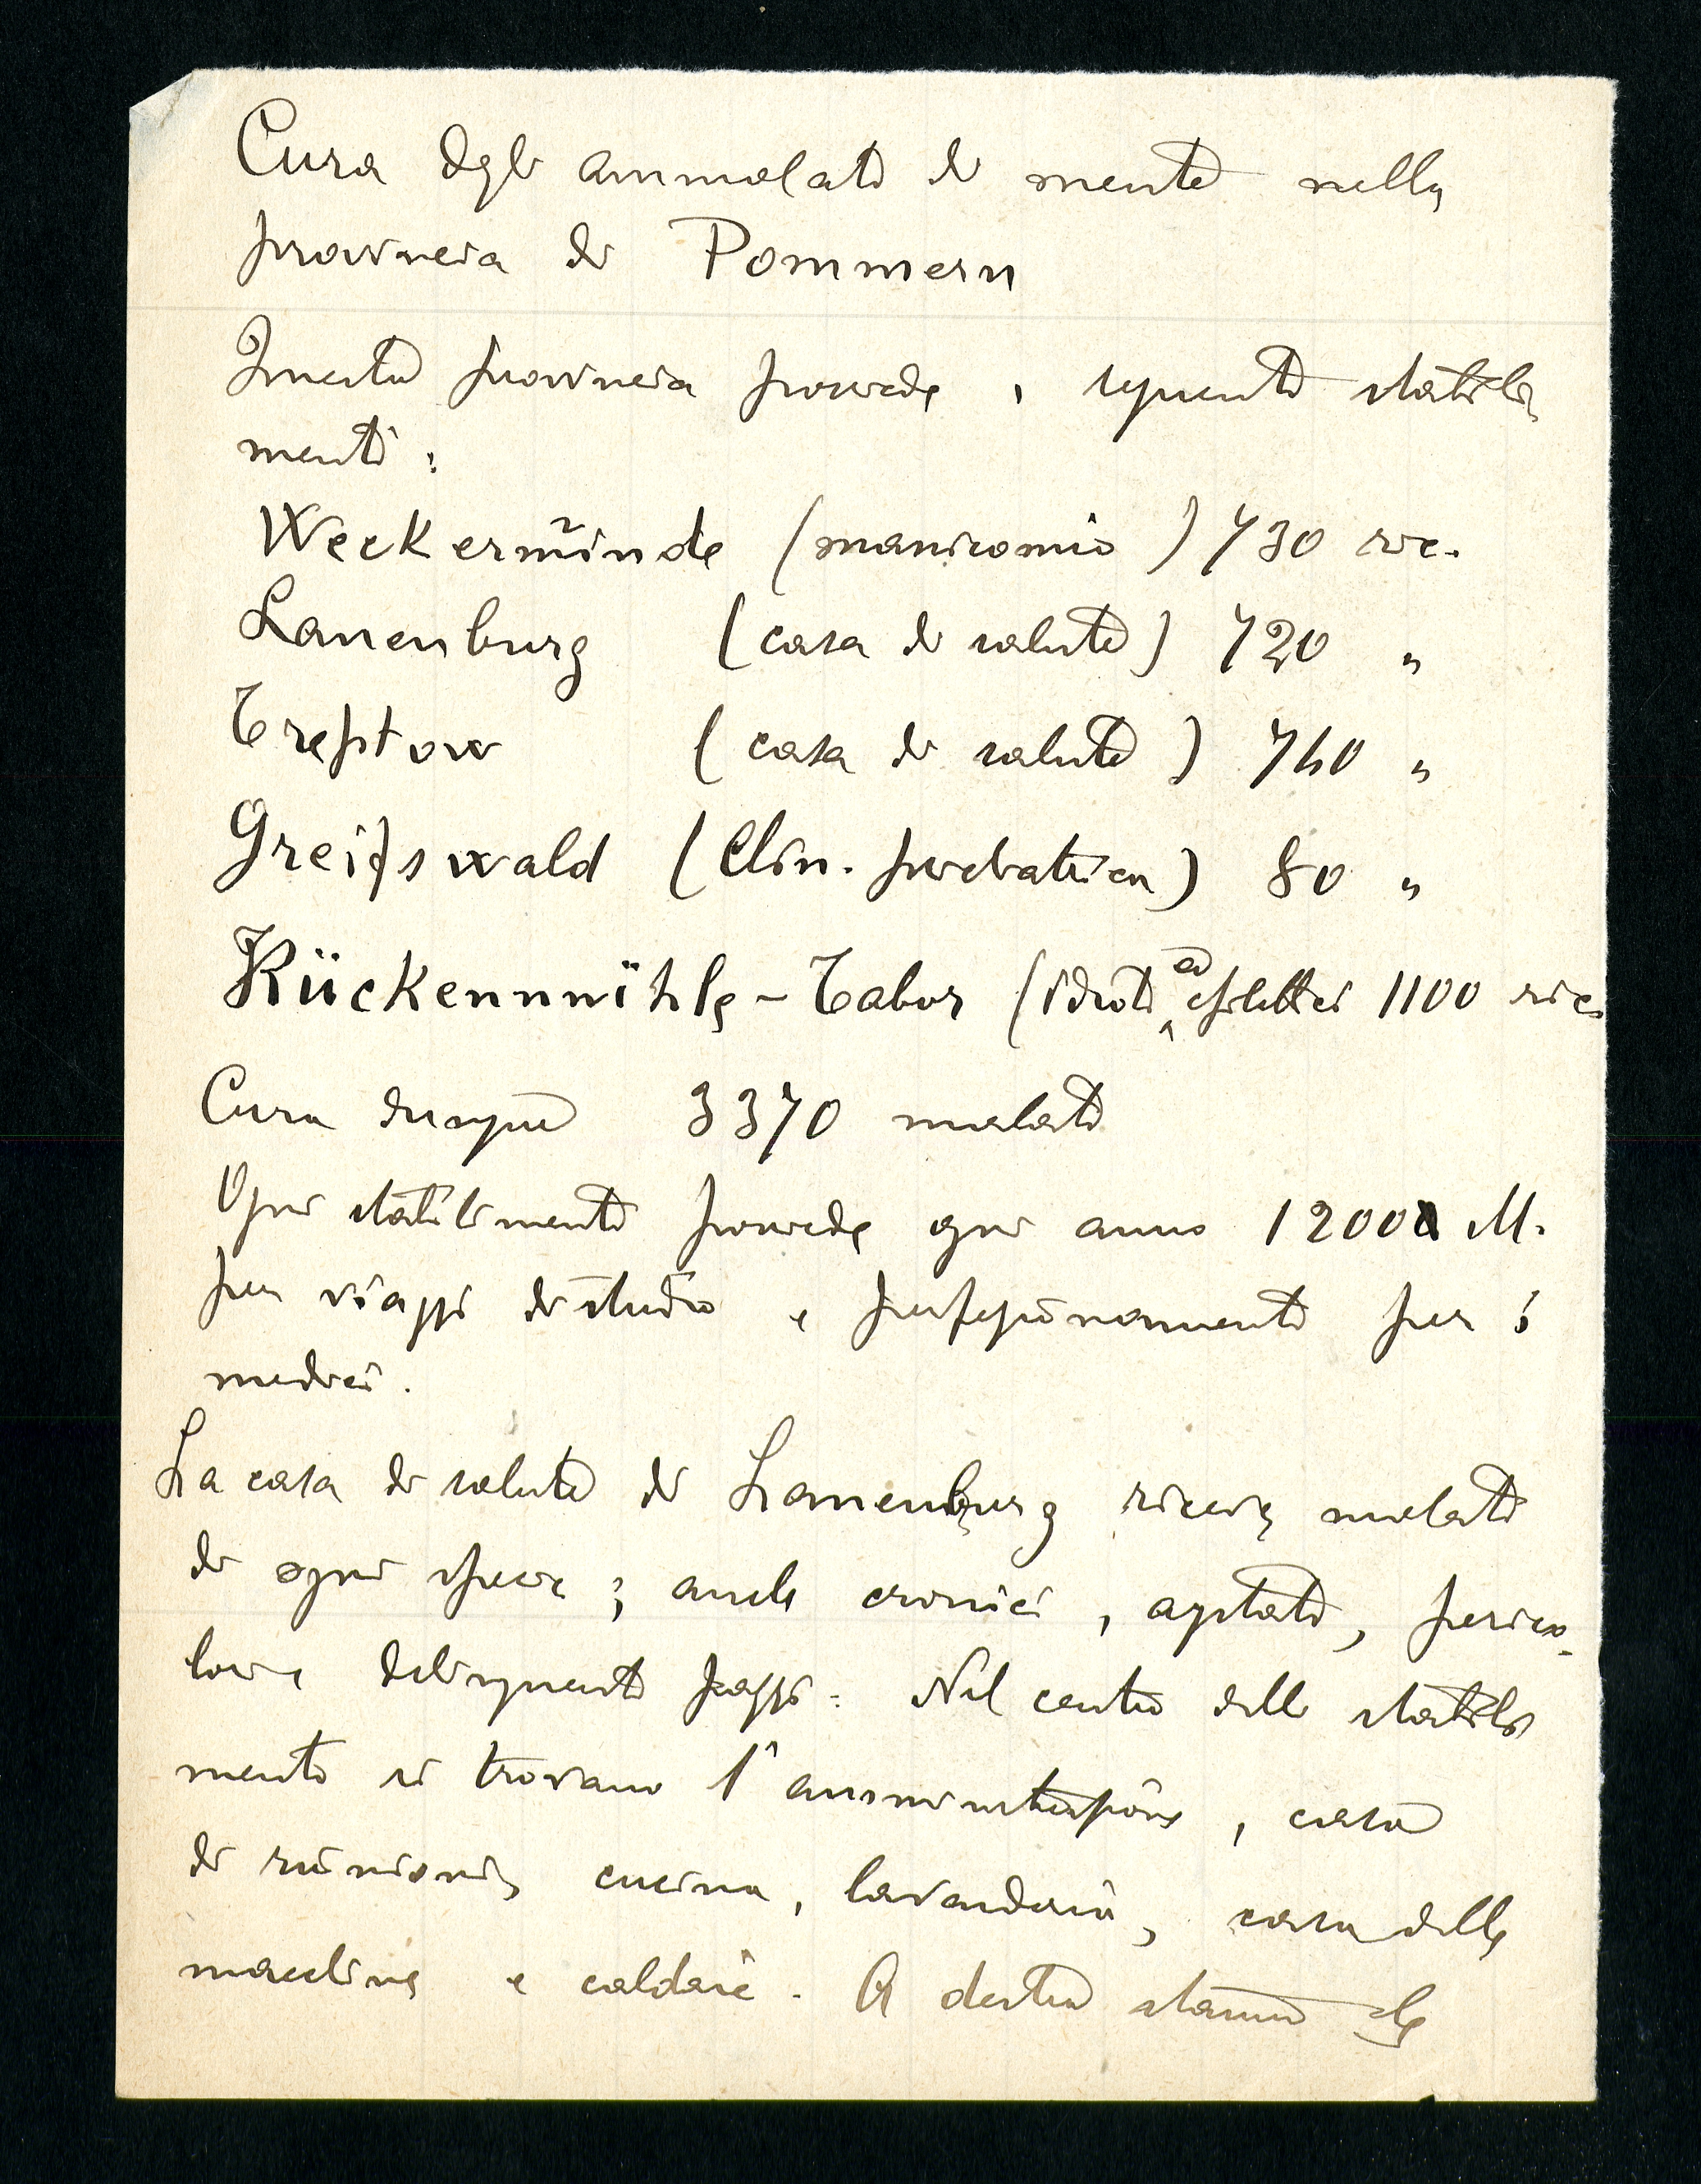 Cura degli ammalati di mente nella
provincia di Pommern
Questa provincia provvede i seguenti stabili
menti:
Weckermünde (manicomio) 730 ric.
Lauenburg (casa di salute) 720 "
Treptow (casa di salute) 740 "
Greifswald (Clin. psichatrica) 80 "
Kückennmühle - Tabor (idioti ed epilettici 1100 ric.
Cura dunque 3370 malati
Ogni stabilimento provvede ogni anno 12000 M.
per viaggi di studio e perfezionamento per i
medici.
La casa di salute di Lauenburg riceve malati
di ogni specie; anche cronici, agitati, perico-
losi e delinquenti pazzi. Nel centro dello stabili
mento si trovano l'amministrazione, casa
di riunioni, cucina, lavanderia, casa delle
macchine e caldaie. A destra stanno le